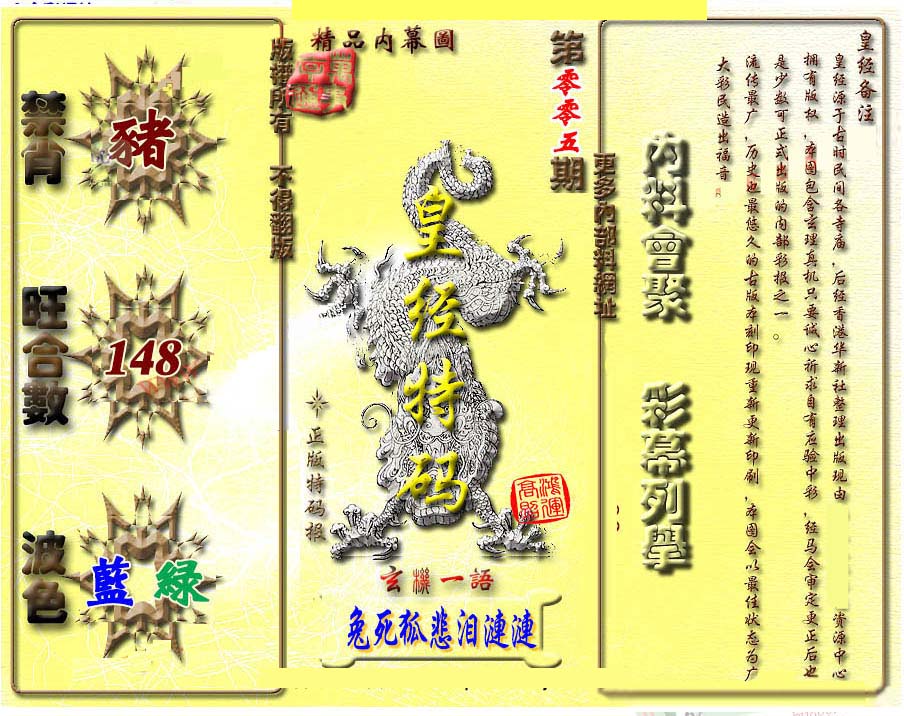 精品内幕圖
版權所有 不得翻版
第零零五期
更多內部料網址
禁肖
豬
旺合數
148
波色
藍 綠
皇经特码
正版特码报
鴻運高照
玄機一語
兔死狐悲泪漣漣
内料會聚
彩幕列舉
皇经备注
皇经源于古时民间各寺庙,后经香港华新社整理出版现由 资源中心
拥有版权,本图包含玄理真机只要诚心祈求自有应验中彩,经马会审定更正后也
是少数可正式出版的内部彩报之一。
流传最广,历史也最悠久的古版本刻印现重新更新印刷,本图会以最佳状态为广
大彩民造出福音